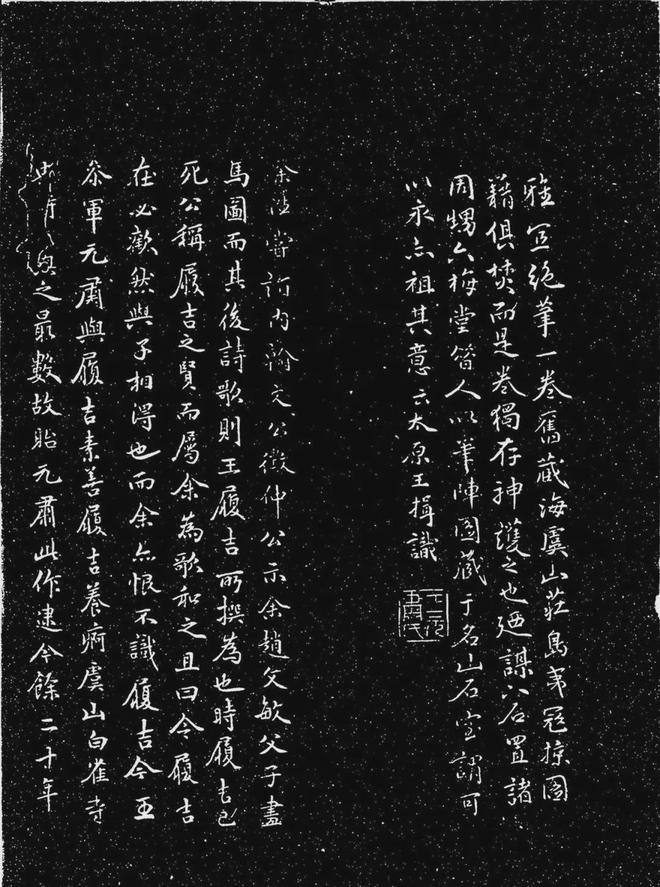 雅宜絕筆一卷舊藏海虞山莊島夷冠掠圖
籍俱焚而是卷獨存神護之也迺謀入石置諸
周甥六梅堂昔人以筆陣圖藏于名山石室謂可
以永志祖其意云太原王揖識
余往嘗詣內翰文公徵仲公示余趙文敏父子畫
馬圖而其後詩歌則王履吉所撰為也時履吉已
死公稱履吉之賢而屬余為歌和之且曰令履吉
在必歡然與子相得也而余亦恨不識履吉今王
參軍元肅與履吉素善履吉養痾虞山白雀寺
與之最數故貽元肅此作逮今餘二十年